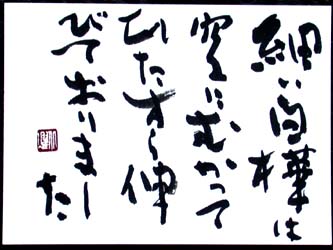 細い白樺は
空にむかって
ひたすら伸
びておりまし
た